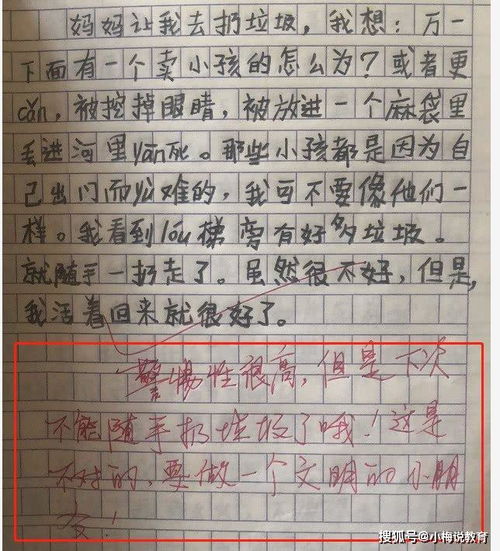 妈妈让我去扔垃圾,我想:万一
下面有一个卖小孩的怎么为?或者更
cǎn,被挖掉眼睛,被放进一个麻袋里
丢进河里yān死。那些小孩都是因为自
己出门而难的,我可不要像他们一
样。我看到lóu梯旁有好多垃圾。
就随手一扔走了。虽然很不好,但是,
我活着回来就很好了。
警惕性很高,但是下次
不能随手扔垃圾了哦!这是
不对的,要做一个文明的小朋
友!
搜狐号@小梅说教育